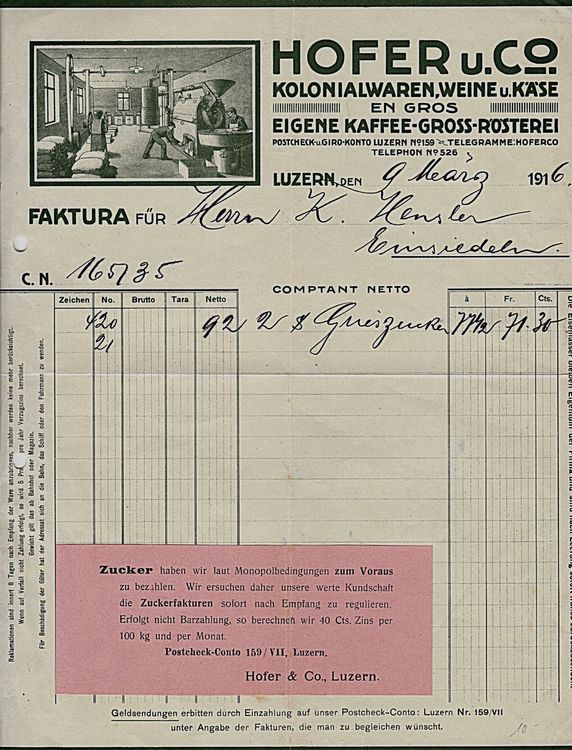 HOFER u. Co.
KOLONIALWAREN, WEINE u. KÄSE
EN GROS
EIGENE KAFFEE-GROSS-RÖSTEREI
POSTCHECK u. GIRO-KONTO LUZERN No 159 TELEGRAMME: HOFERCO
TELEPHON No 526
LUZERN, DEN 9 März 1916.
FAKTURA FÜR Herrn K. Hensler
Einsiedeln.
C. N. 165/35
COMPTANT NETTO
Zeichen No. Brutto Tara Netto à Fr. Cts.
420 92 2 S Grieszucker 77 1/2 71.30
21
Reklamationen sind innert 8 Tagen nach Empfang der Ware anzubringen, nachher werden keine mehr berücksichtigt.
Wenn auf Verfall nicht Zahlung erfolgt, so wird 5 Pro pro Jahr Verzugszins berechnet.
Gewicht gilt das ab Bahnhof oder Magazin.
Für Beschädigung der Güter hat der Adressat sich an die Bahn, das Schiff oder den Fuhrmann zu wenden.
Zucker haben wir laut Monopolbedingungen zum Voraus
zu bezahlen. Wir ersuchen daher unsere werte Kundschaft
die Zuckerfakturen sofort nach Empfang zu regulieren.
Erfolgt nicht Barzahlung, so berechnen wir 40 Cts. Zins per
100 kg und per Monat.
Postcheck-Conto 159/VII, Luzern.
Hofer & Co., Luzern.
Geldsendungen erbitten durch Einzahlung auf unser Postcheck-Conto: Luzern Nr. 159/VII
unter Angabe der Fakturen, die man zu begleichen wünscht.
10-